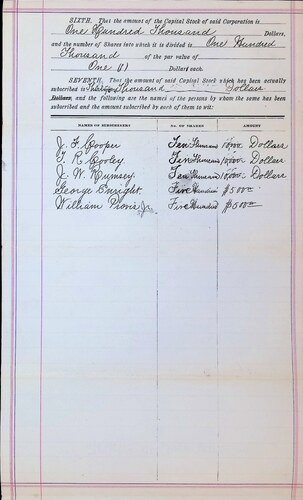 SIXTH. That the amount of the Capital Stock of said Corporation is
One Hundred Thousand Dollars,
and the number of Shares into which it is divided is One Hundred
Thousand of the par value of
One (1) Dollars each.
SEVENTH. That the amount of said Capital Stock which has been actually
subscribed is Thousand Dollars
Dollars, and the following are the names of the persons by whom the same has been
subscribed and the amount subscribed by each of them to wit:
NAMES OF SUBSCRIBERS NO. OF SHARES AMOUNT
J. F. Cooper Ten Thousand 10,000 Dollars
T. R. Cooley Ten Thousand 10,000 Dollars
J. W. Rumsey Ten Thousand 10,000 Dollars
George Enright Five Hundred $500
William Provis Jr. Five Hundred $500